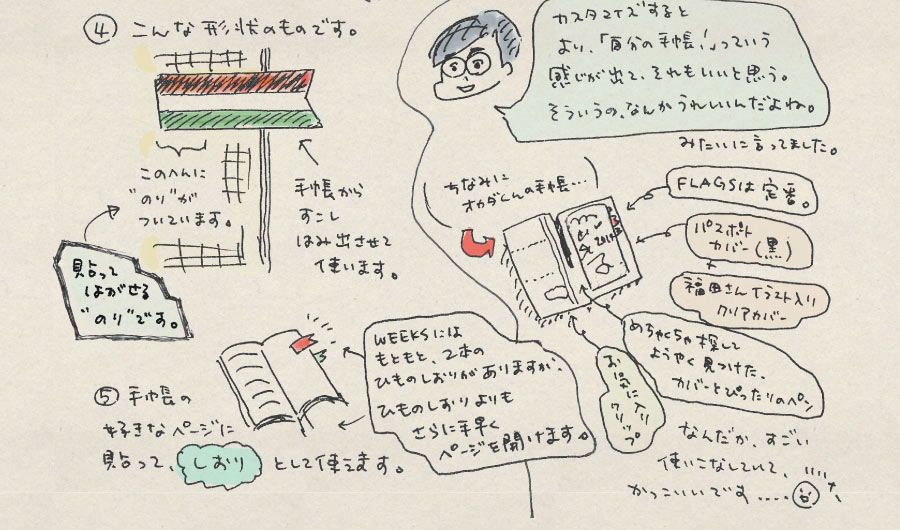 ④ こんな形状のものです。
このへんに
"のり"が
ついています。
手帳から
すこし
はみ出させて
使います。
貼って
はがせる
"のり"です。
⑤ 手帳の
好きなページに
貼って、しおりとして使えます。
WEEKSには
もともと、2本の
ひものしおりがありますが、
ひものしおりよりも
さらに手早く
ページを開けます。
カスタマイズすると
より、「自分の手帳!」っていう
感じが出て、それもいいと思う。
そういうの、なんかうれしいんだよね。
みたいに言ってました。
ちなみに
オカダくんの手帳…
FLAGSは定番。
パスポート
カバー(黒)
福田さんイラスト入り
クリアカバー
めちゃくちゃ探して
ようやく見つけた、
カバーとぴったりのペン
お気に入り
クリップ
なんだか、すごい
使いこなしていて、
かっこいいです……